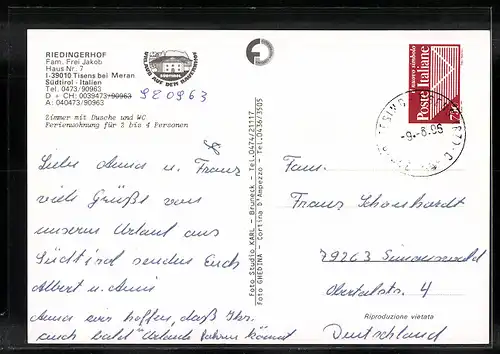 RIEDINGERHOF
Fam. Frei Jakob
Haus Nr. 7
I-39010 Tisens bei Meran
Südtirol - Italien
Tel. 0473/90963
D + CH: 0039473/90963 920963
A: 040473/90963
URLAUB AUF DEM BAUERNHOF
SÜDTIROL
Zimmer mit Dusche und WC
Ferienwohnung für 2 bis 4 Personen
Liebe Anna u. Franz
viele Grüße von
unserem Urlaub aus
Südtirol senden Euch
Albert u. Anni
Anna wir hoffen, daß Ihr
auch bald Urlaub fahren könnt
Foto Studio KARL - Bruneck - Tel. 0474/21117
Foto GHEDINA - Cortina d'Ampezzo - Tel. 0436/3505
il nuovo simbolo
Poste Italiane
750
-9.-8.96
Fam.
Franz Schonhardt
79263 Simonswald
Obertalstr. 4
Deutschland
Riproduzione vietata